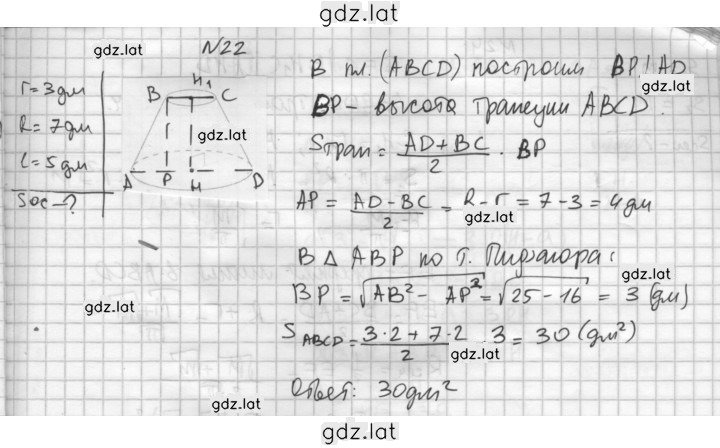 gdz.lat
N22
gdz.lat
r = 3дм
R = 7дм
l = 5дм
Sос - ?
H1
B C
gdz.lat
A P H D
В пл. (ABCD) построим BP⊥AD
gdz.lat
BP - высота трапеции ABCD.
Sтрап = (AD + BC)/2 · BP
AP = (AD - BC)/2 = R - r = 7 - 3 = 4 дм
gdz.lat
В Δ ABP по т. Пифагора:
gdz.lat
BP = √(AB² - AP²) = √(25 - 16) = 3 (дм)
gdz.lat
S ABCD = (3·2 + 7·2)/2 · 3 = 30 (дм²)
gdz.lat
Ответ: 30 дм²
gdz.lat
gdz.lat